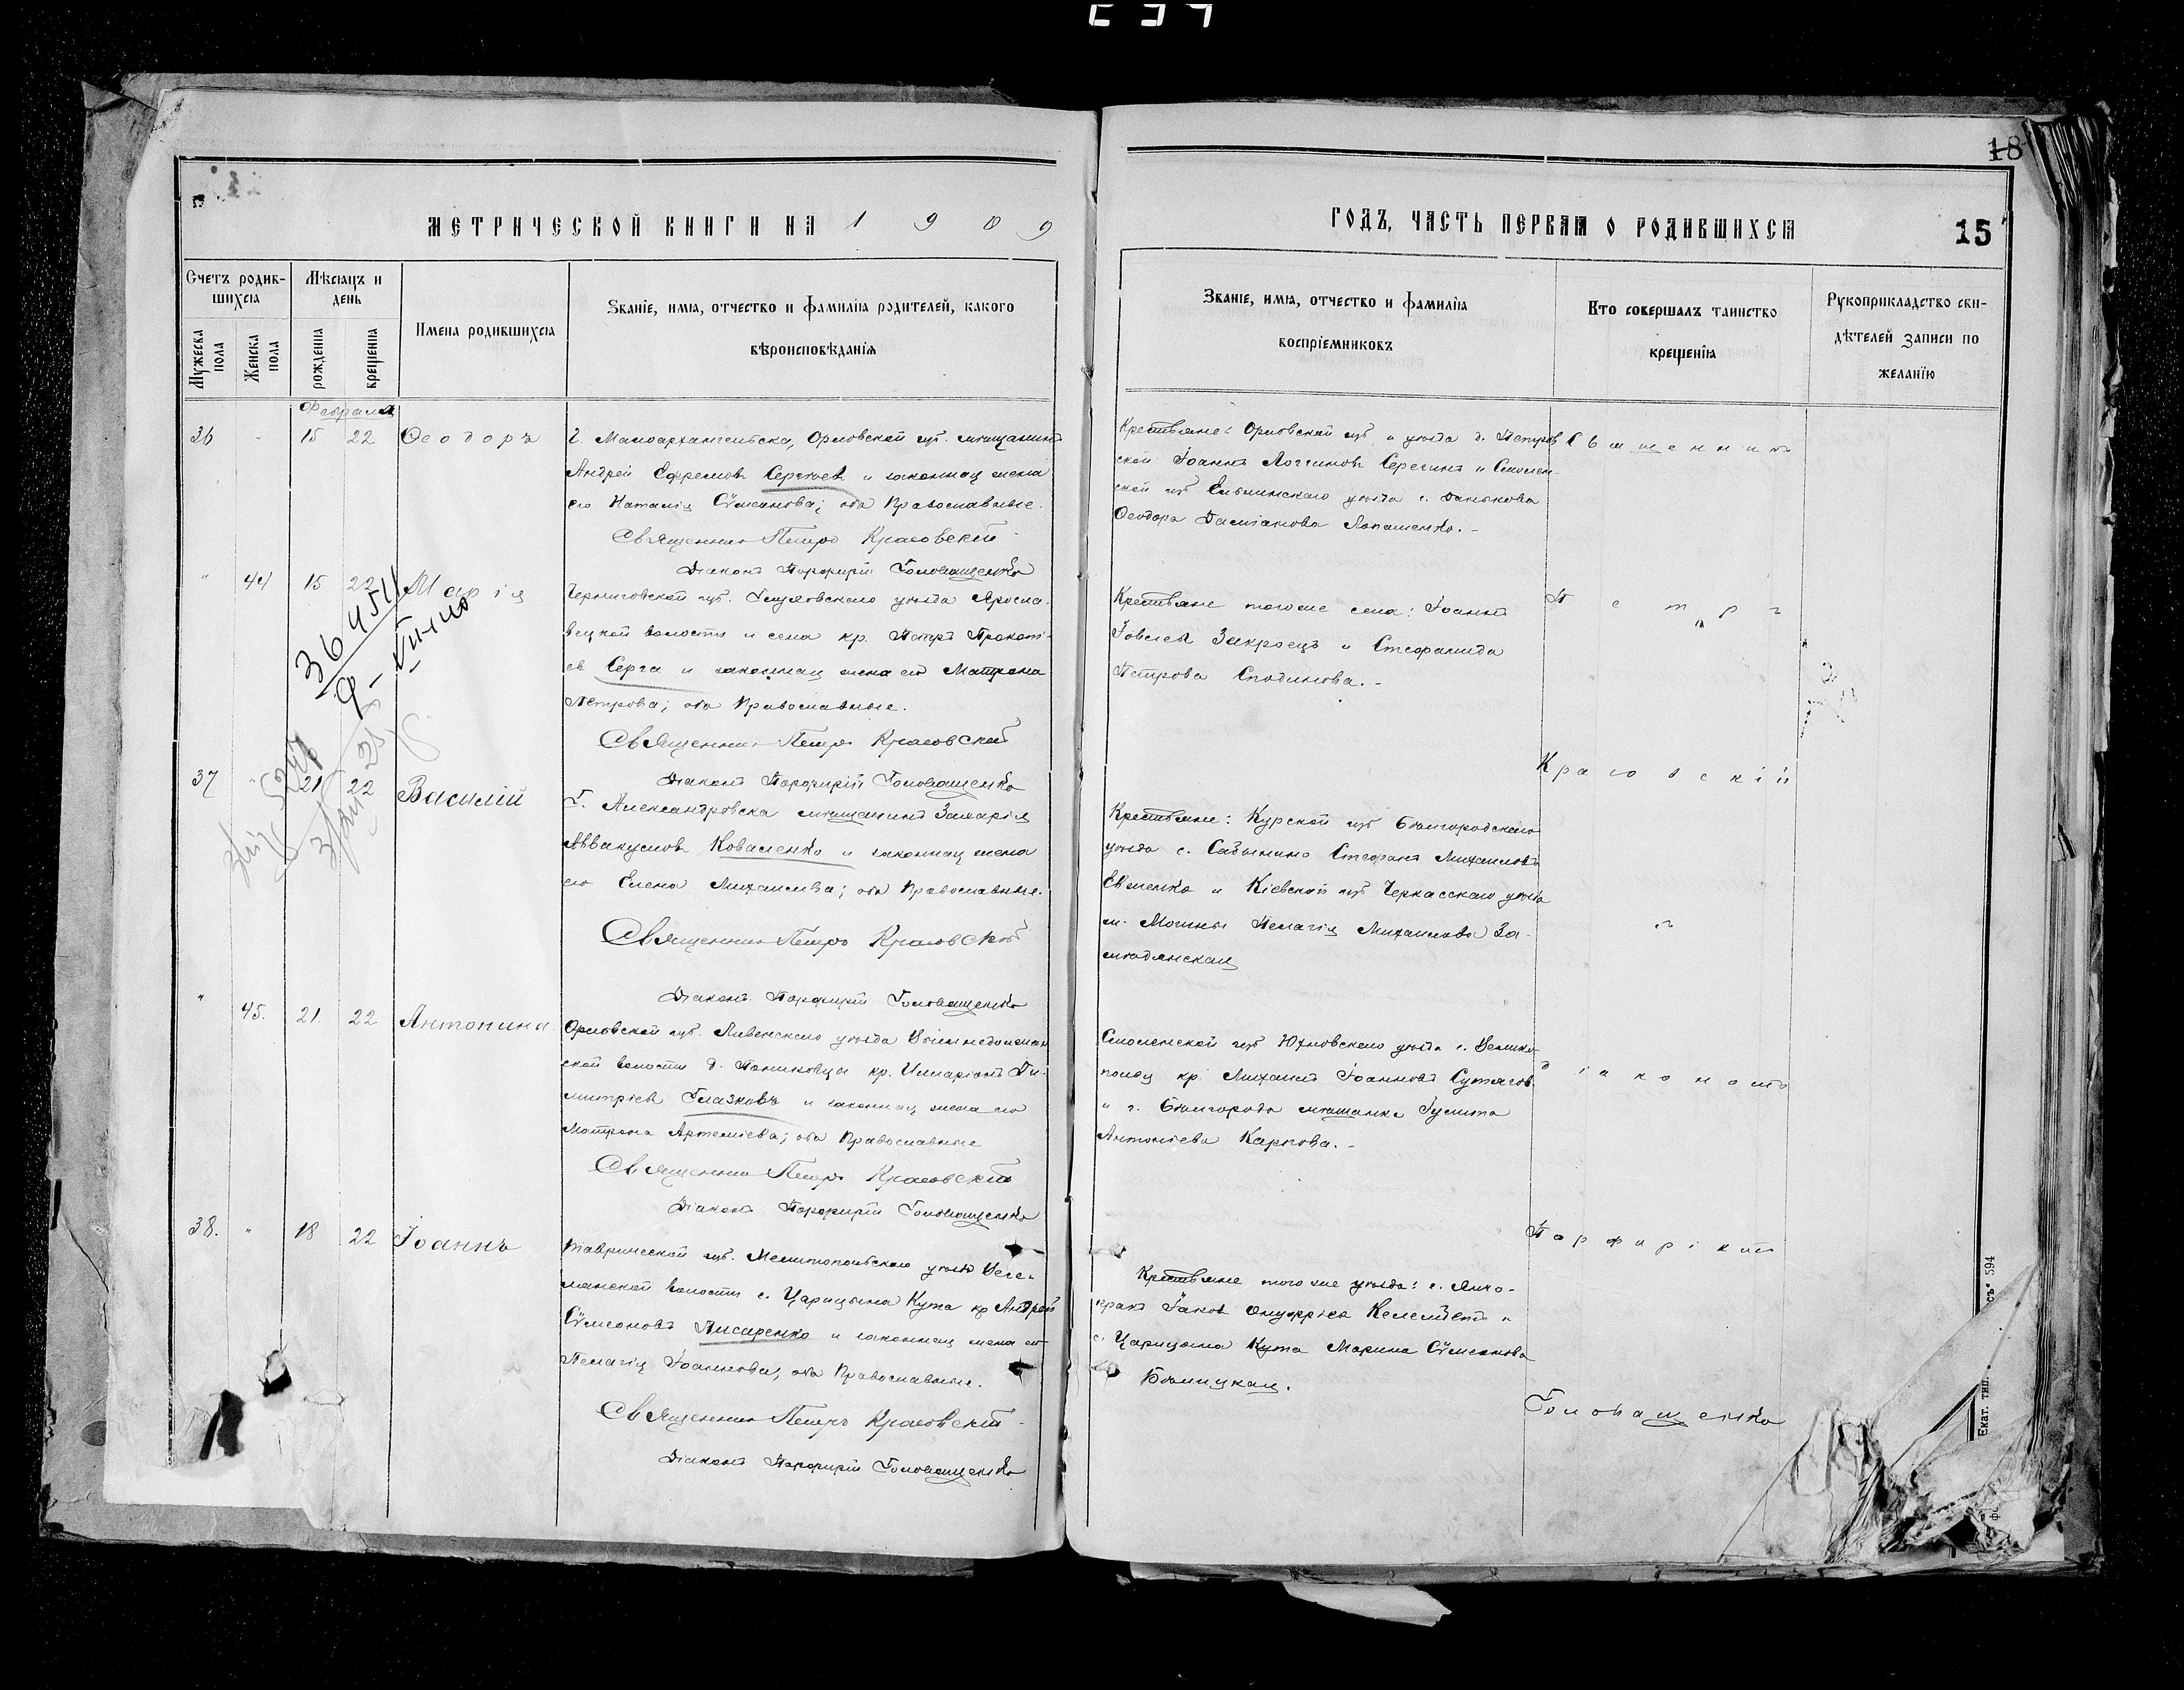 18
МЕТРИЧЕСКОЙ КНИГИ НА 1909
ГОДЪ, ЧАСТЬ ПЕРВАЯ О РОДИВШИХСЯ
15
Счетъ родив-
шихся
Мужеска
пола
Женска
пола
Мѣсяцъ и
день
рожденія
крещенія
Имена родившихся
Званіе, имя, отчество и фамилія родителей, какого
вѣроисповѣданія
Званіе, имя, отчество и фамилія
воспріемниковъ
Кто совершалъ таинство
крещенія
Рукоприкладство сви-
дѣтелей записи по
желанію
Февраля
36 15 22 Ѳеодоръ
Г. Малоархангельска, Орловской губ. мѣщанинъ
Андрей Ефремовъ Сергѣев и законная жена
его Наталія Сѵмеонова; оба Православные.
Священникъ Петръ Красовскій
Діаконъ Порфирій Головащенко
Крестьяне: Орловской губ и уѣзда д. Петров
ской Іоаннъ Логгиновъ Серегинъ и Смолен-
ской губ Ельнинскаго уѣзда с. Данькова
Ѳеодора Даміанова Лопашенко. -
" 44 15 22 Марія
Черниговской губ. Глуховскаго уѣзда Яросла-
вецкой волости и села кр. Петръ Прокопі-
ев Серга и законная жена его Матрона
Петрова; оба Православные.
Священникъ Петръ Красовскій
Діаконъ Порфирій Головащенко
Крестьяне того же села: Іоаннъ
Іовлевъ Закроецъ и Стефанида
Петрова Сподинова. -
36 454
37 " 21 22 Василій
Г. Александровска мѣщанинъ Захарія
Аввакумовъ Коваленко и законная жена
его Елена Михаилова; оба Православные.
Священникъ Петръ Красовскій
Діаконъ Порфирій Головащенко
Крестьяне: Курской губ Бѣлгородскаго
уѣзда с. Сабынино Стефанъ Михаиловъ
Евженко и Кіевской губ Черкасскаго уѣзда
м. Мошны Пелагія Михаилова За-
"
45. 21. 22 Антонина
Орловской губ. Ливенскаго уѣзда
ской волости д. Паниковцы кр. Иларіонъ Ди-
митріевъ Глазковъ и законная жена его
Матрона Артеміева; оба Православные
Священникъ Петръ Красовскій
Діаконъ Порфирій Головащенко
Смоленской губ Юхновскаго уѣзда с. Велико-
полья кр. Михаилъ Іоанновъ Сутягов
и г. Бѣлгорода мѣщанка Іулита
Антоніева Карпова. -
38. " 18 22 Іоаннъ
Таврической губ. Мелитопольскаго уѣзда Весе-
лянской волости с. Царицына Кута кр Андрей
Сѵмеоновъ Писаренко и законная жена его
Пелагія Іоаннова, оба Православные.
Священникъ Петръ Красовскій
Діаконъ Порфирій Головащенко
Крестьяне того же уѣзда: с. Янчо-
крак Іаков Онуфріев и
с. Царицына Кута Марина Сѵмеонова
Бѣлицкая.
Священникъ
Петръ
Красовскій
съ
діакономъ
Порфиріемъ
Головащенко
Екат. тип.
594